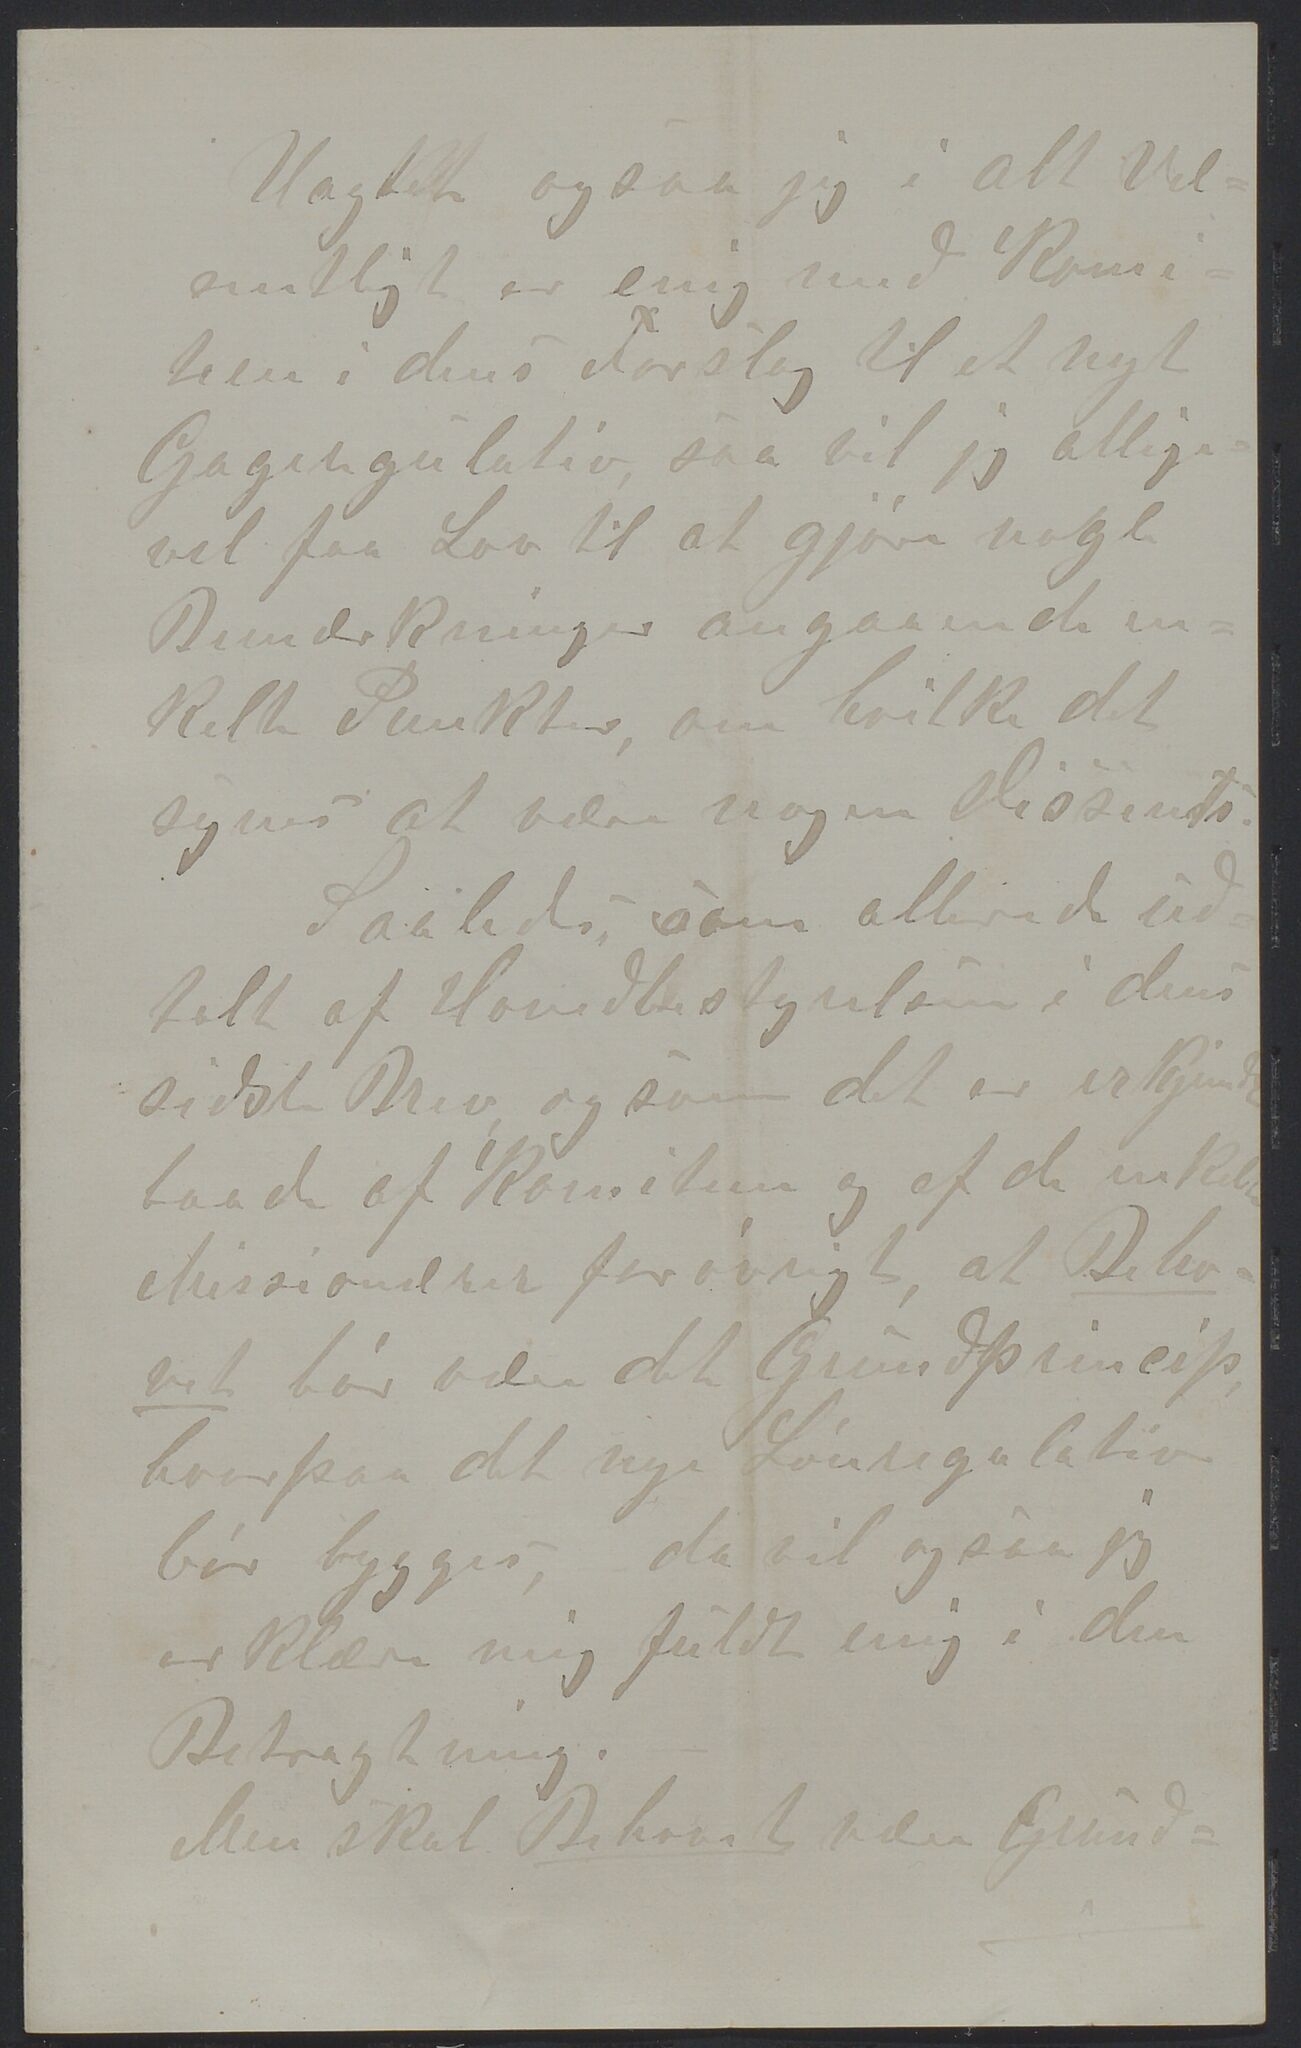 Uagtet ogsaa jeg i alt Væ=
sentligt er enig med Komi=
teen i dens Forslag til et nyt
Gageregulativ, saa vil jeg allige=
vel faa Lov til at gjöre nogle
Bemærkninger angaaende en=
kelte Punkter, om hvilke det
synes at være nogen Dissents.
Saaledes, som allerede ud=
talt af Hovedbestyrelsen i dens
sidste Brev, og som det er erkjendt
baade af Komiteen og af de enkelte
Missionærer forövrigt, at Beho=
vet bör være det Grundprincip,
hvorpaa det nye Lönregulativ
bör bygges, da vil ogsaa jeg
erklære mig fuldt enig i den
Betragtning. —
Men skal Behovet være Grund=